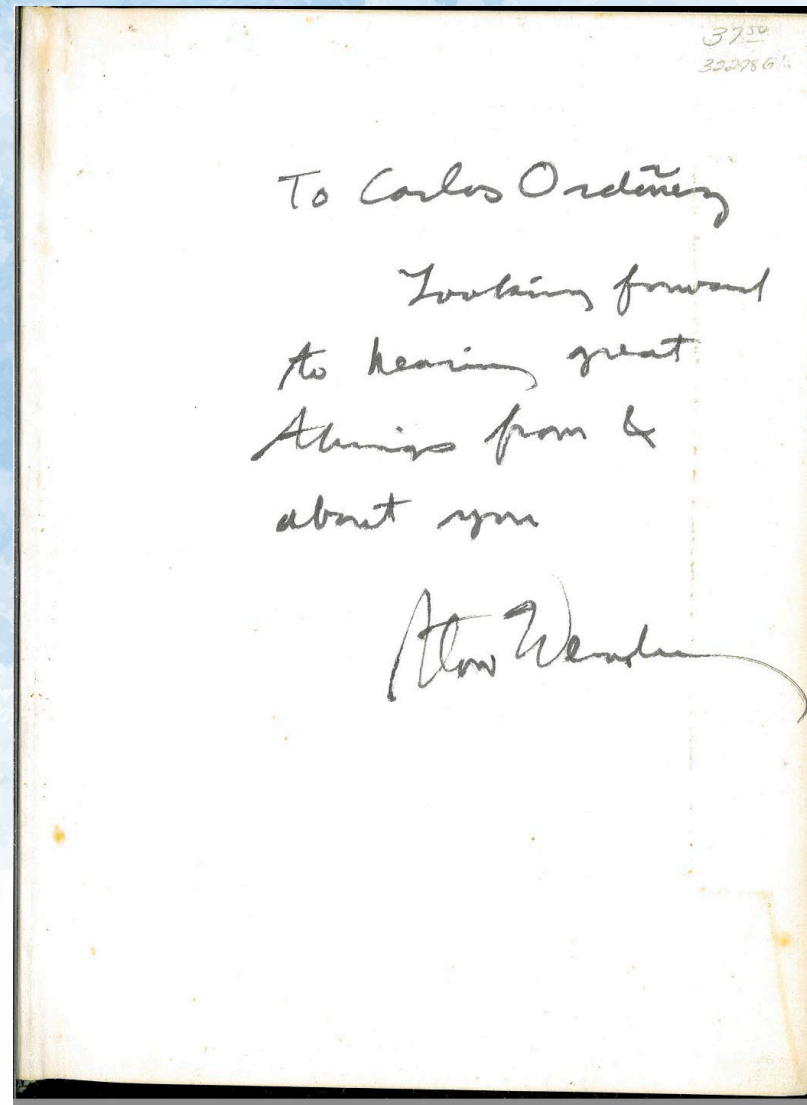 37 50
32278G
To Carlos Ordóñez
Looking forward
to hearing great
things from &
about you